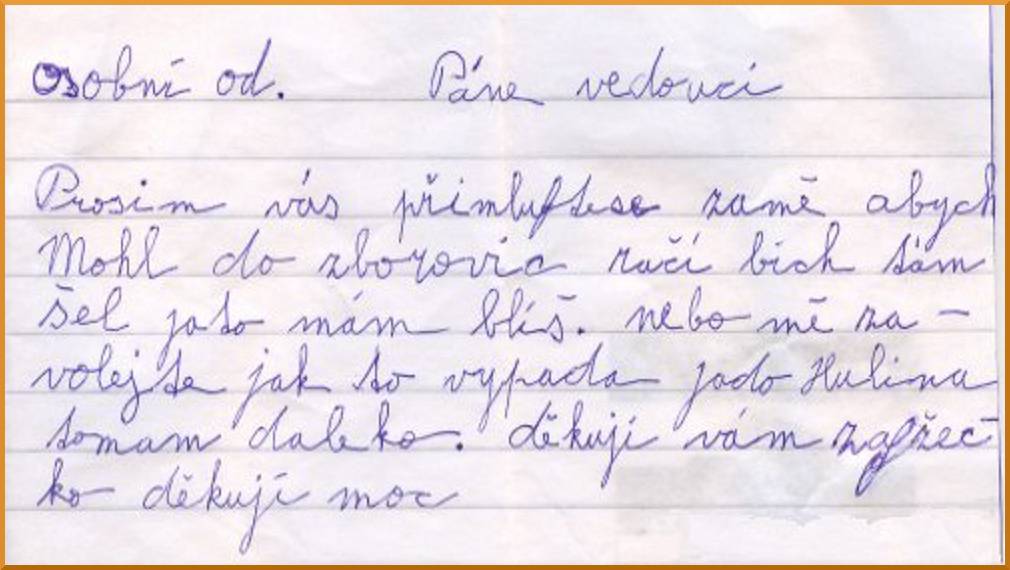 Osobní od. Páne vedoucí
Prosim vás přimluftese zamě abych
Mohl do zborovic račí bich tám
šel jato mám blíš. nebo mě za-
volejte jak to vypada jado Hulina
tomam daleko. děkuji vám zafžeč
ko děkuji moc